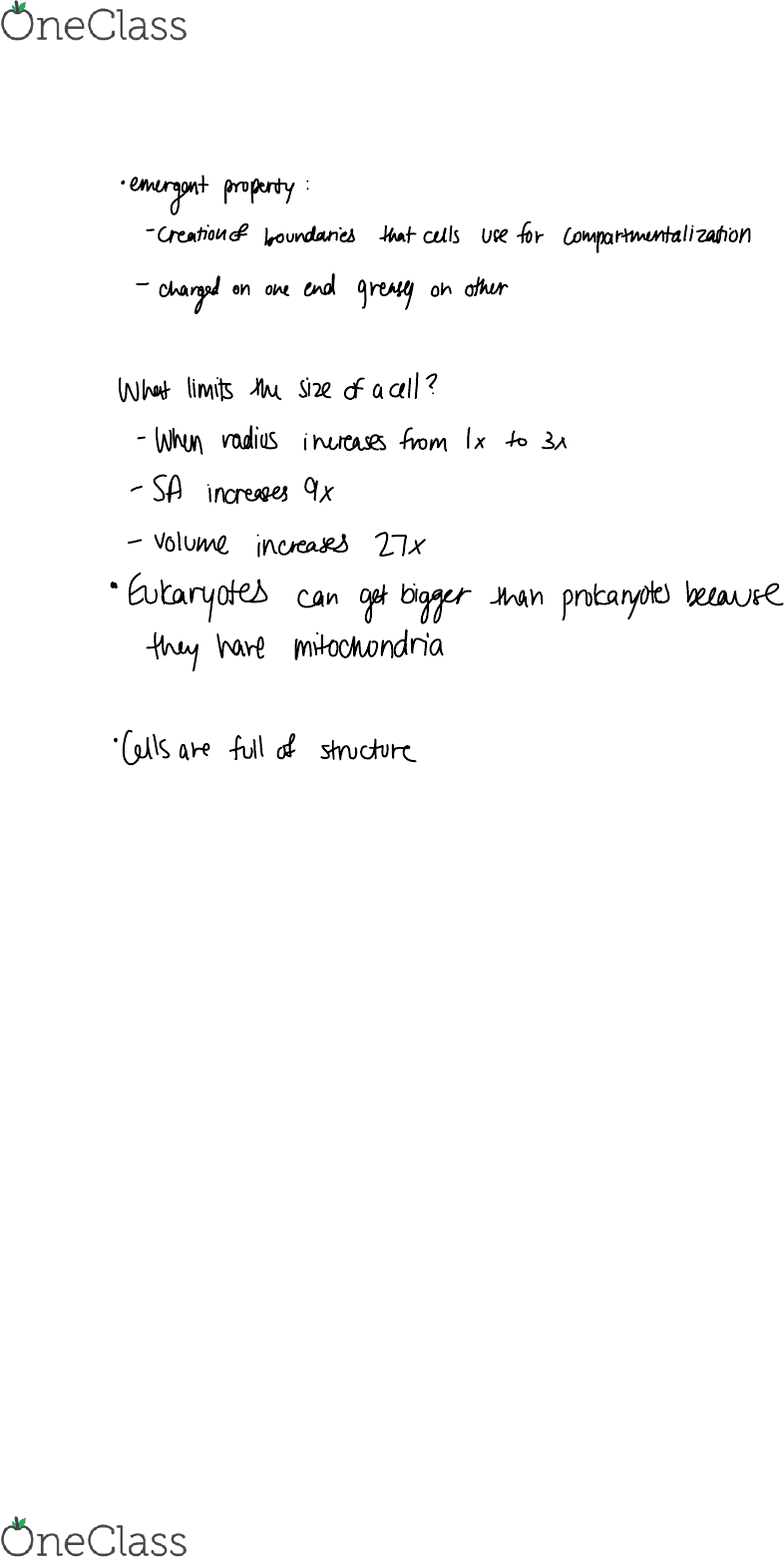 OneClass
• emergent property :
- Creation of boundaries that cells use for compartmentalization
- charged on one end greasy on other
What limits the size of a cell?
- When radius increases from 1x to 3x
- SA increases 9x
- volume increases 27x
• Eukaryotes can get bigger than prokaryotes because
they have mitochondria
• Cells are full of structure
OneClass